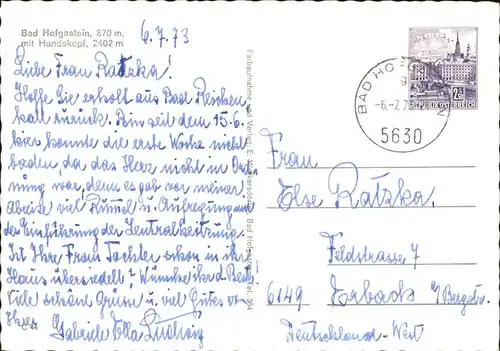 Bad Hofgastein, 870 m,
mit Hundskopf, 2402 m
6.7.73
Liebe Frau Ratzka!
Hoffe Sie erholt aus Bad Reichen
hall zurück. Bin seit dem 15.6.
hier konnte die erste Woche nicht
baden, da das Herz nicht in Ord
nung war, denn es gab vor meiner
Abreise viel Rummel u. Aufregung mit
der Einführung der Zentralheizung
Ist Ihre Frau Tochter schon in ihr
Haus übersiedelt? Wünsche ihr d. Beste
Viele schöne Grüsse u. viel Gutes v.
Ihrer Gabriele Ella Ludwig
Farbaufnahme und Verlag: E.
Bad Hofgastein
BAD HOFGASTEIN
9
-6.-7.73
5630
2 S
REPUBLIK ÖSTERREICH
Frau
Else Ratzka
Feldstrasse 7
6149 Erbach a/Bergstr.
Deutschland-West